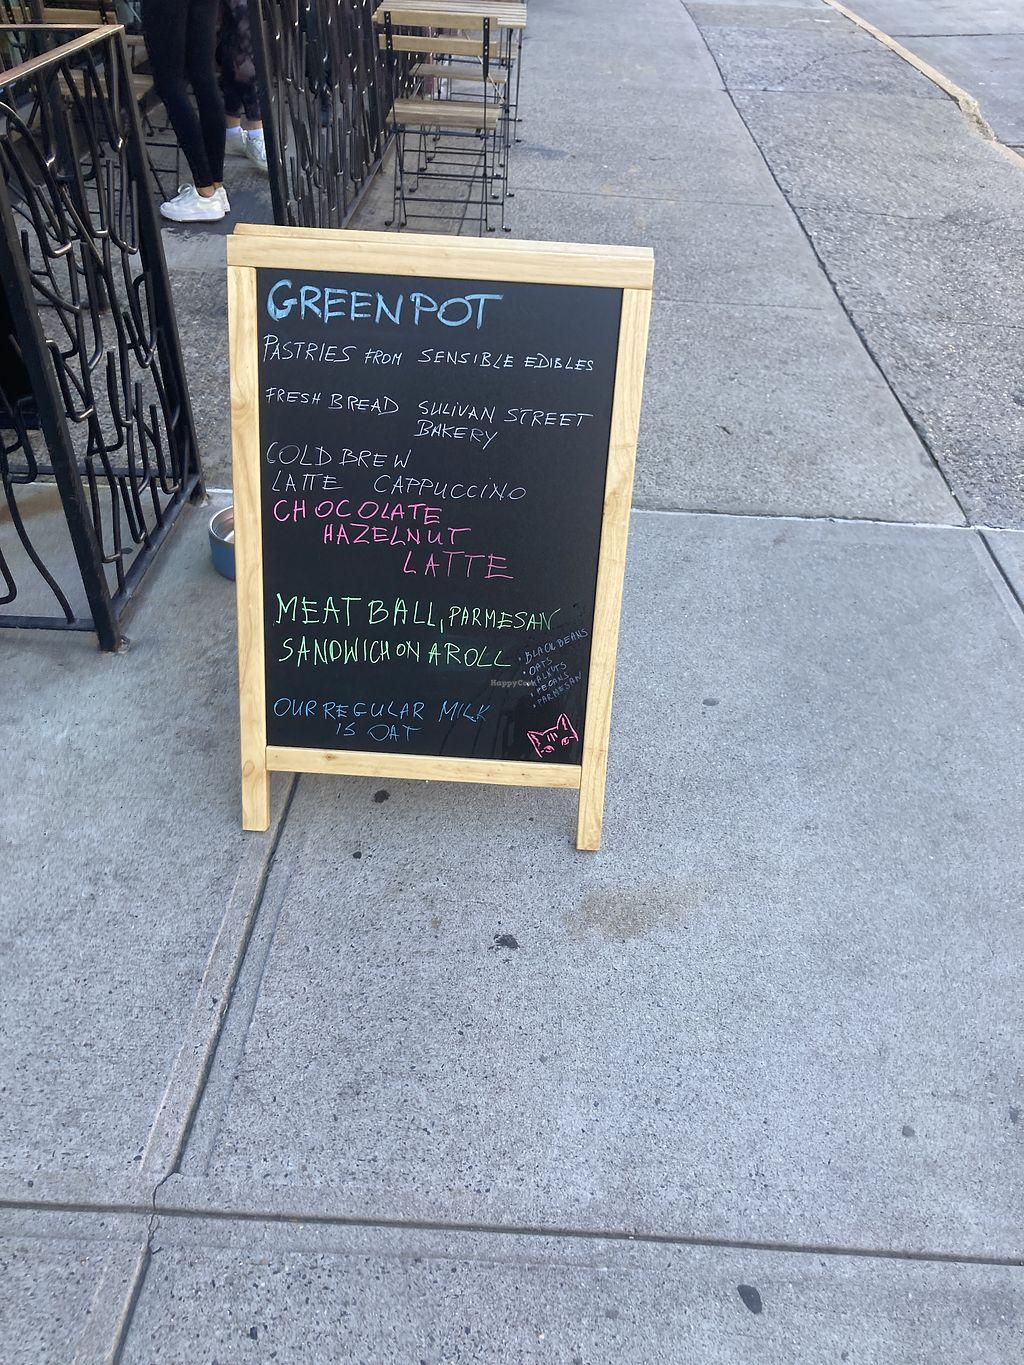 GREENPOT
PASTRIES FROM SENSIBLE EDIBLES
FRESH BREAD SULIVAN STREET
BAKERY
COLD BREW
LATTE CAPPUCCINO
CHOCOLATE
HAZELNUT
LATTE
MEAT BALL, PARMESAN
SANDWICH ON A ROLL
• BLACK BEANS
• OATS
• WALNUTS
• PECANS
• PARMESAN
OUR REGULAR MILK
IS OAT